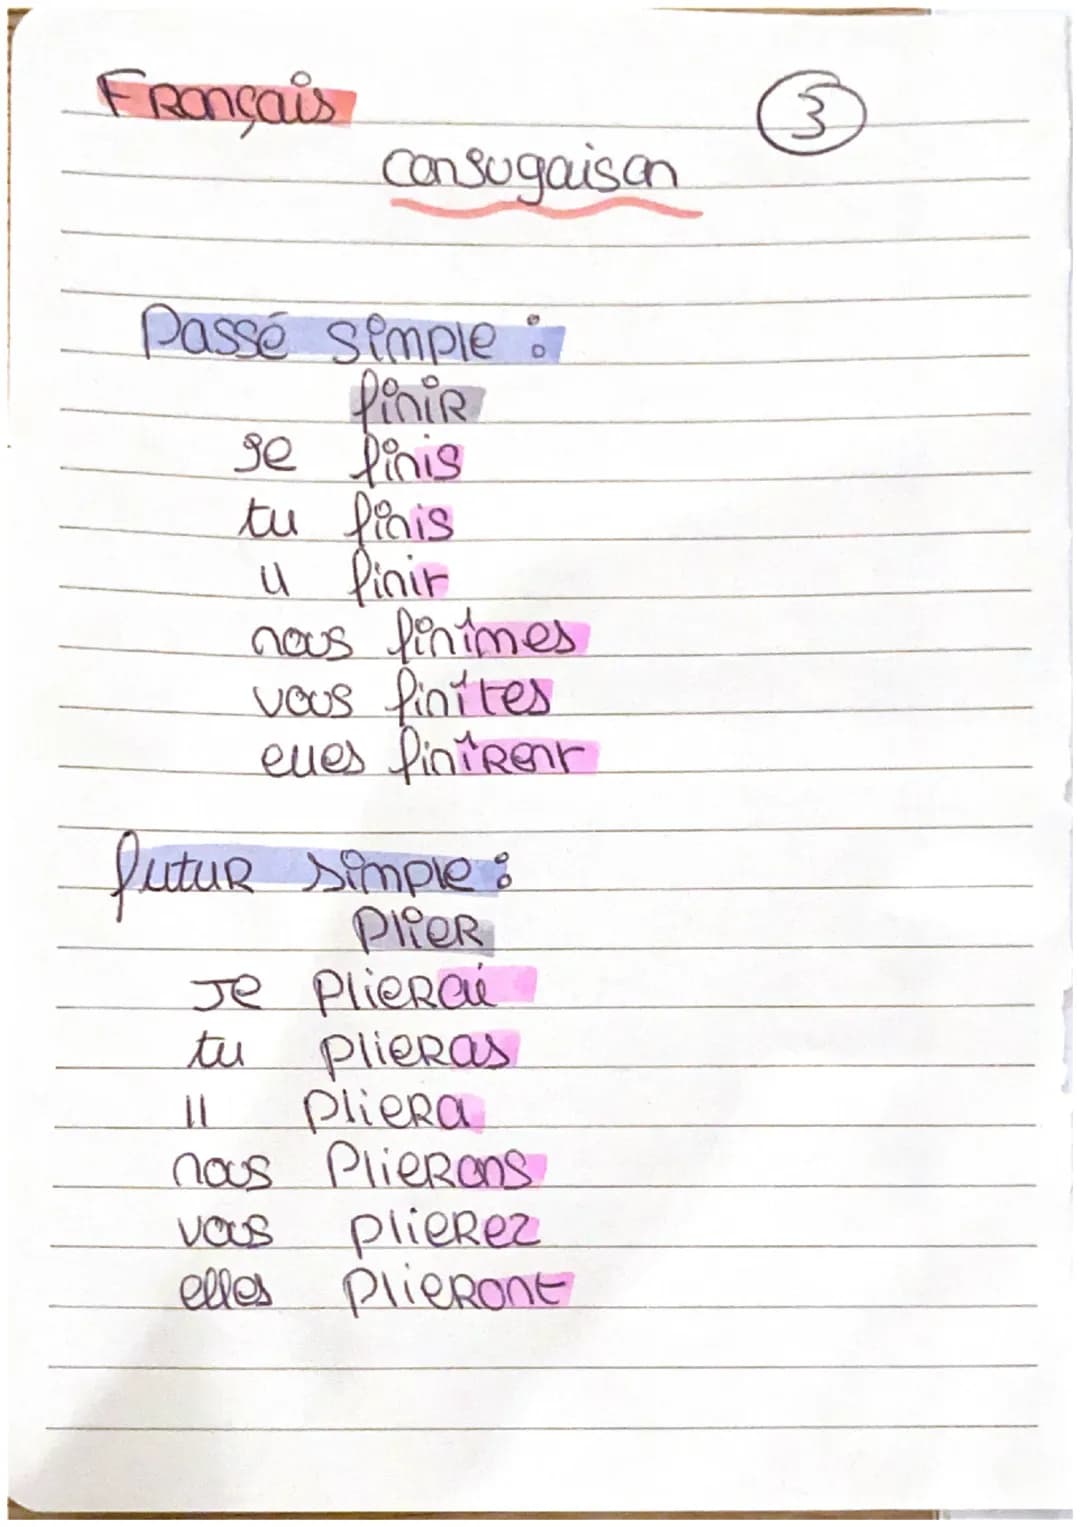 Français
3
conjugaison
Passé simple :
finir
je finis
tu finis
il finit
nous finîmes
vous finîtes
elles finîrent
futur simple :
Plier
Je plierai
tu plieras
il pliera
nous Plierons
vous plierez
elles plieront